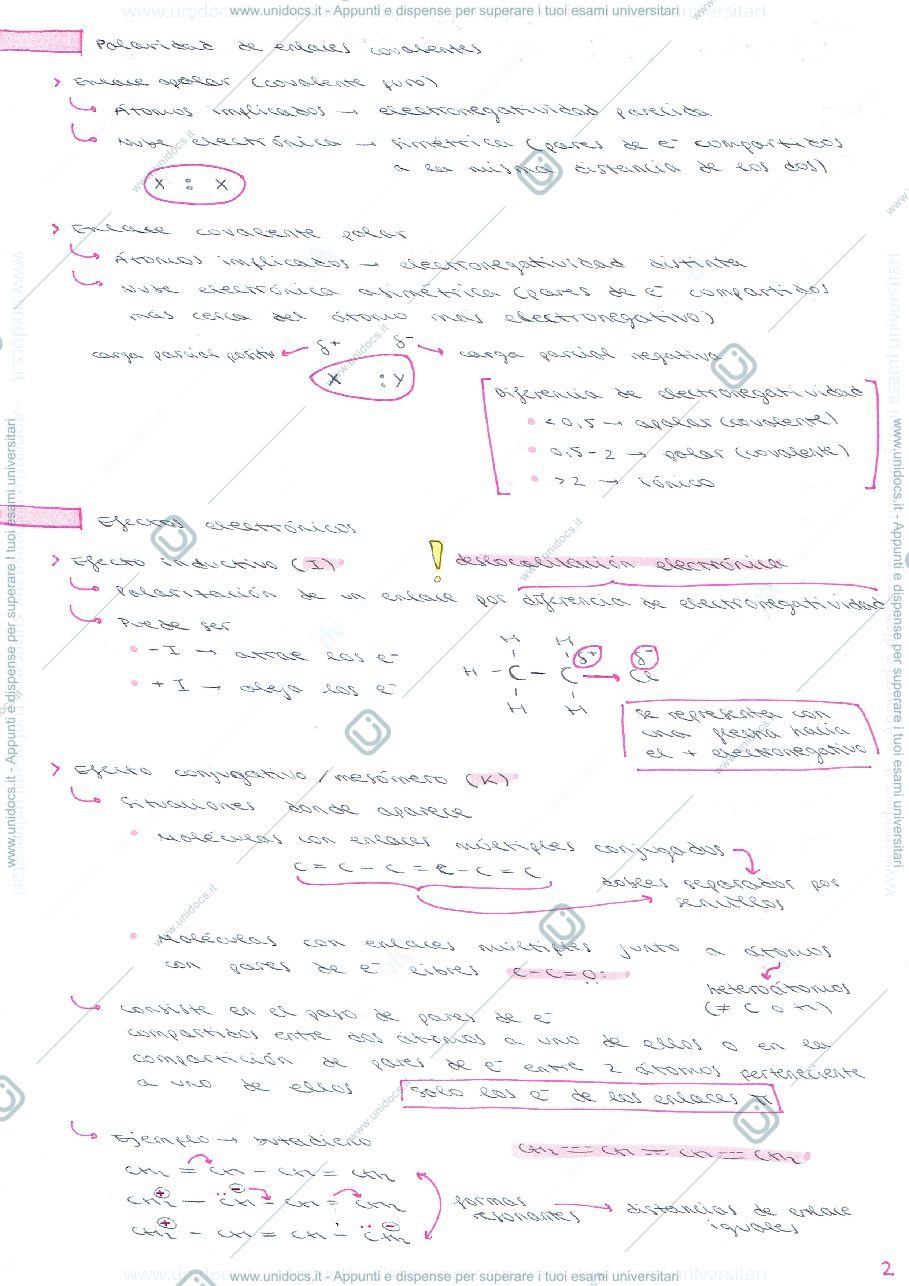 www.unidocs.it - Appunti e dispense per superare i tuoi esami universitari
Polaridad de enlaces covalentes
> Enlace apolar (covalente puro)
Átomos implicados → electronegatividad parecida
Nube electrónica → simétrica (pares de e⁻ compartidos
a la misma distancia de los dos)
X : X
> Enlace covalente polar
Átomos implicados → electronegatividad distinta
Nube electrónica asimétrica (pares de e⁻ compartidos
más cerca del átomo más electronegativo)
carga parcial positiv ← δ+ δ- → carga parcial negativa
X : Y
Diferencia de electronegatividad
• <0,5 → apolar (covalente)
• 0,5-2 → polar (covalente)
• >2 → iónico
Efectos electrónicos
> Efecto inductivo (I) ! deslocalización electrónica
Polarización de un enlace por diferencia de electronegatividad
Puede ser
• -I → atrae los e⁻
• +I → aleja los e⁻
H H
H - C - C → Cl
δ+ δ-
H H
se representa con
una flecha hacia
el + electronegativo
> Efecto conjugativo/mesómero (K)
Situaciones donde aparece
• Moléculas con enlaces múltiples conjugados
C = C - C = C - C = C
dobles separados por
sencillos
• Moléculas con enlaces múltiples junto a átomos
con pares de e⁻ libres C-C=O:
heteroátomos
(≠ C o H)
consiste en el paso de pares de e⁻
compartidos entre dos átomos a uno de ellos o en la
compartición de pares de e⁻ entre 2 átomos perteneciente
a uno de ellos solo los e⁻ de los enlaces π
Ejemplo → butadieno
CH₂ = CH - CH = CH₂
CH₂ == CH == CH == CH₂
CH₂⊕ - CH⊖ - CH = CH₂
CH₂⊕ - CH = CH - CH₂⊖
formas
resonantes → distancias de enlace
iguales
2
www.unidocs.it - Appunti e dispense per superare i tuoi esami universitari